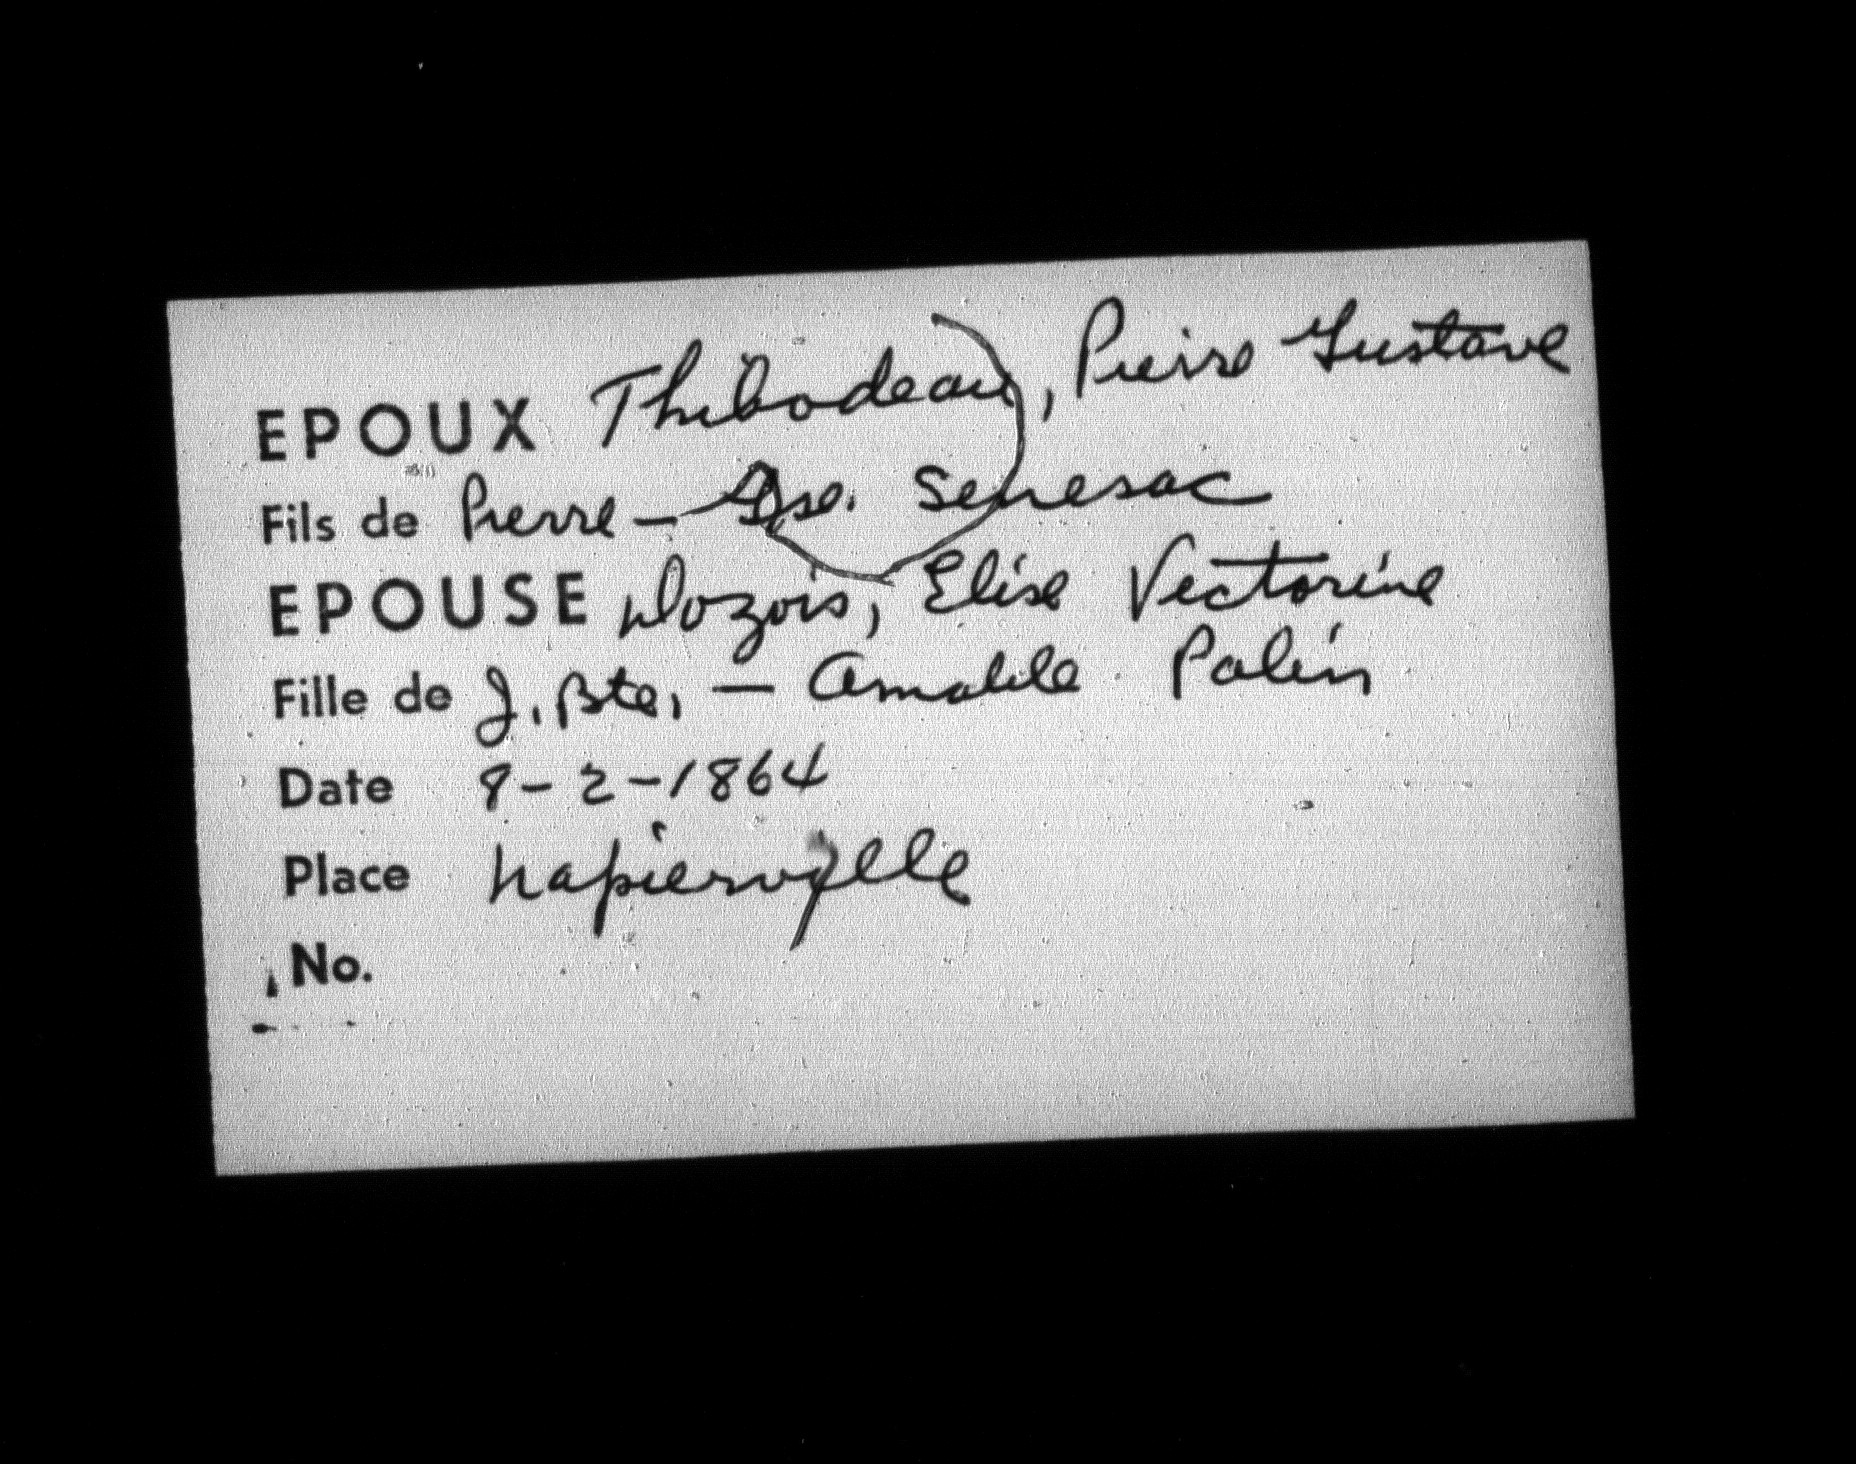 EPOUX Thibodeau, Pierre Gustave
Fils de Pierre - Gse. Senesac
EPOUSE Dozois, Elise Victorine
Fille de J. Bte. - Amable Palin
Date 8-2-1864
Place Napierville
No.